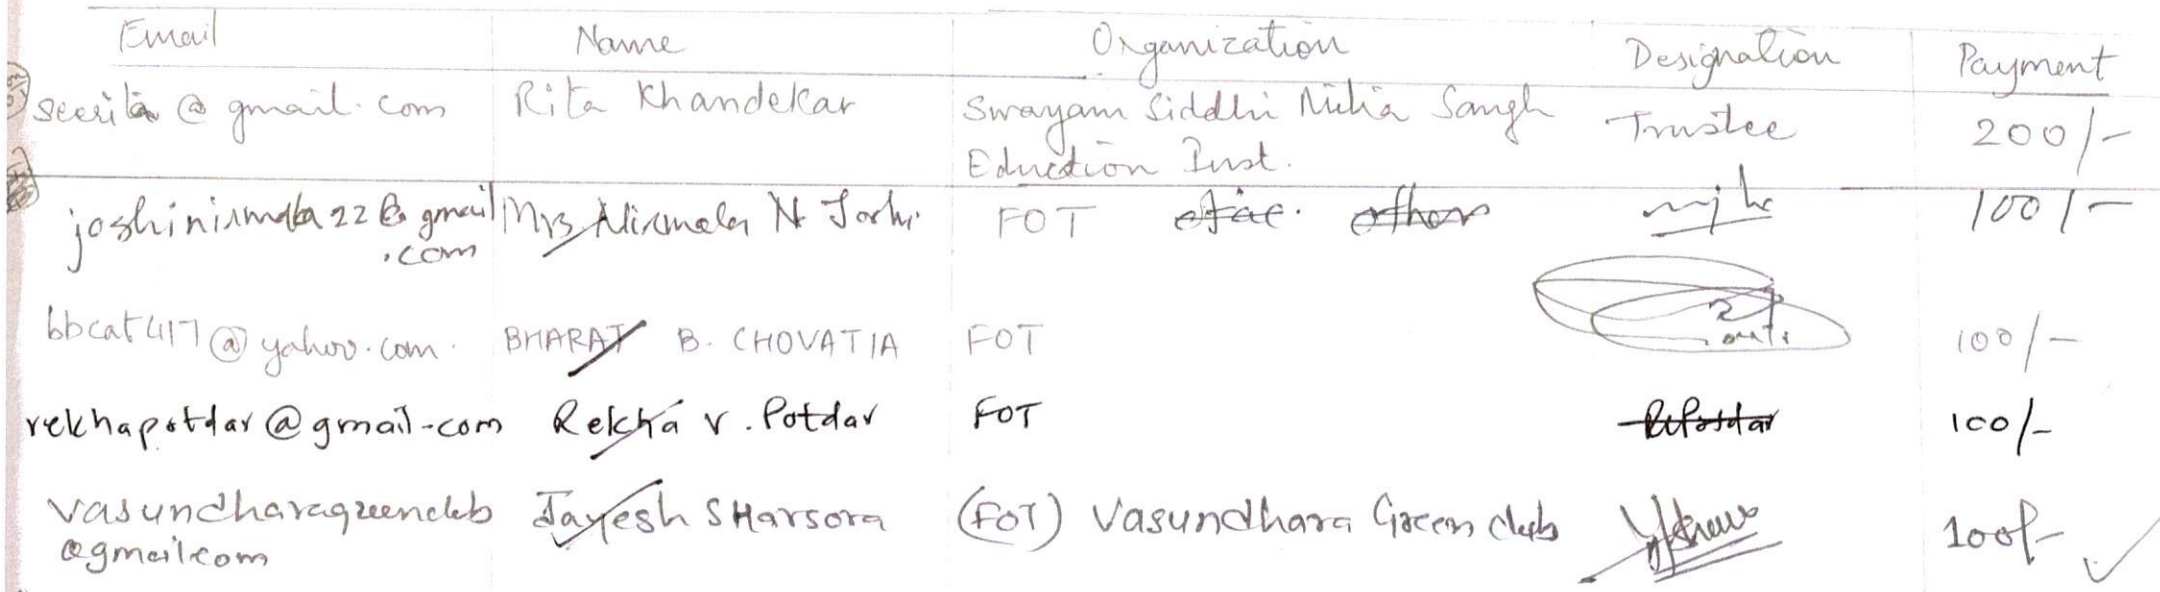 Email Name Organization Designation Payment
seerita@gmail.com Rita Khandekar Swayam Siddhi Sangh Trustee 200/-
Eduction Inst.
joshinirmala22@gmail Mrs Nirmala N Joshi FOT 100/-
.com
bbcat417@yahoo.com. BHARAT B. CHOVATIA FOT 100/-
rekhapotdar@gmail.com Rekha V. Potdar FOT RVPotdar 100/-
vasundharagreenclub Jayesh S Harsora (FOT) Vasundhara Green club 100/-
@gmail.com